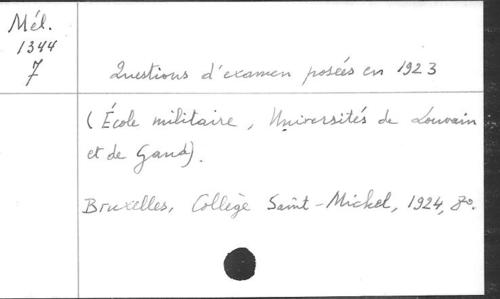 Mél.
1344
7
Questions d'examen posées en 1923
(École militaire, Universités de Louvain
et de Gand).
Bruxelles, Collège Saint-Michel, 1924, 8o.